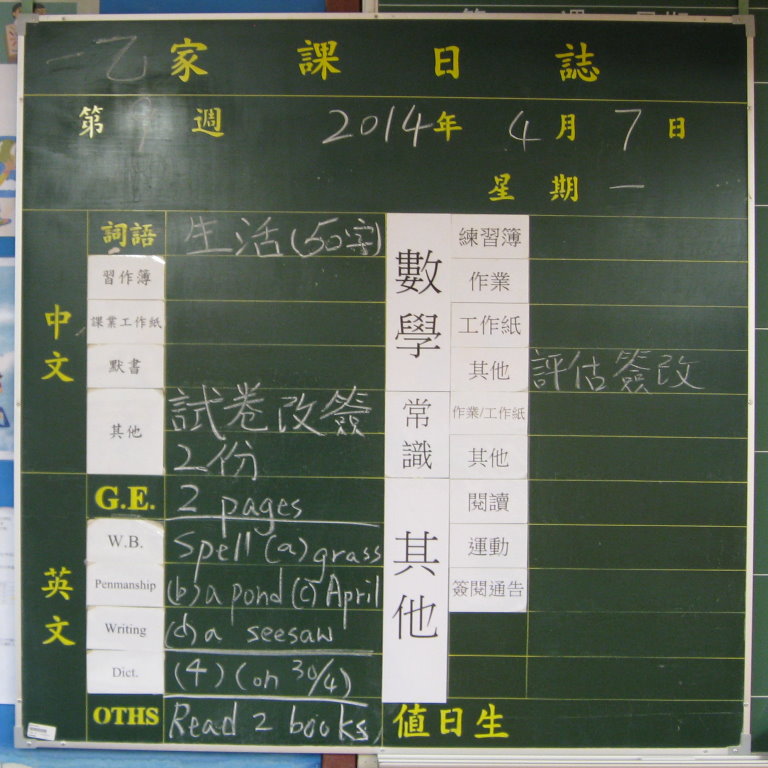 一乙家課日誌
第 9 週 2014年 4月 7日
星期一
中文
詞語 生活(50字)
習作簿
課業工作紙
默書
其他 試卷改簽
2份
英文
G.E. 2 pages
W.B. Spell (a) grass
Penmanship (b) a pond (c) April
Writing (d) a seesaw
Dict. (4) (on 30/4)
OTHS Read 2 books
數學
練習簿
作業
工作紙
其他 評估簽改
常識
作業/工作紙
其他
其他
閱讀
運動
簽閱通告
值日生